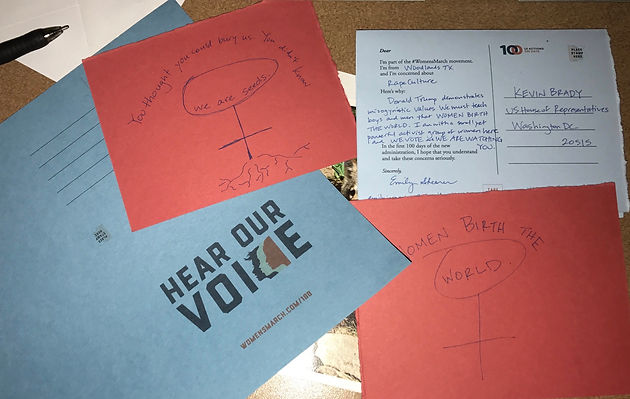 You thought you could bury us. You didn't know
we are seeds.
HEAR OUR
VOICE
WOMENSMARCH.COM/100
100 10 ACTIONS
100 DAYS
PLACE
STAMP
HERE
Dear
I'm part of the #WomensMarch movement.
I'm from Woodlands TX
and I'm concerned about
Rape Culture
Here's why:
Donald Trump demonstrates
misogynistic values. We must teach
boys and men that WOMEN BIRTH
THE WORLD. I am with a small yet
powerful activist group of women here
and WE VOTE WE ARE WATCHING
YOU
In the first 100 days of the new
administration, I hope that you understand
and take these concerns seriously.
Sincerely,
Emily Shearer
KEVIN BRADY
US House of Representatives
Washington DC.
20515
WOMEN BIRTH THE
WORLD.